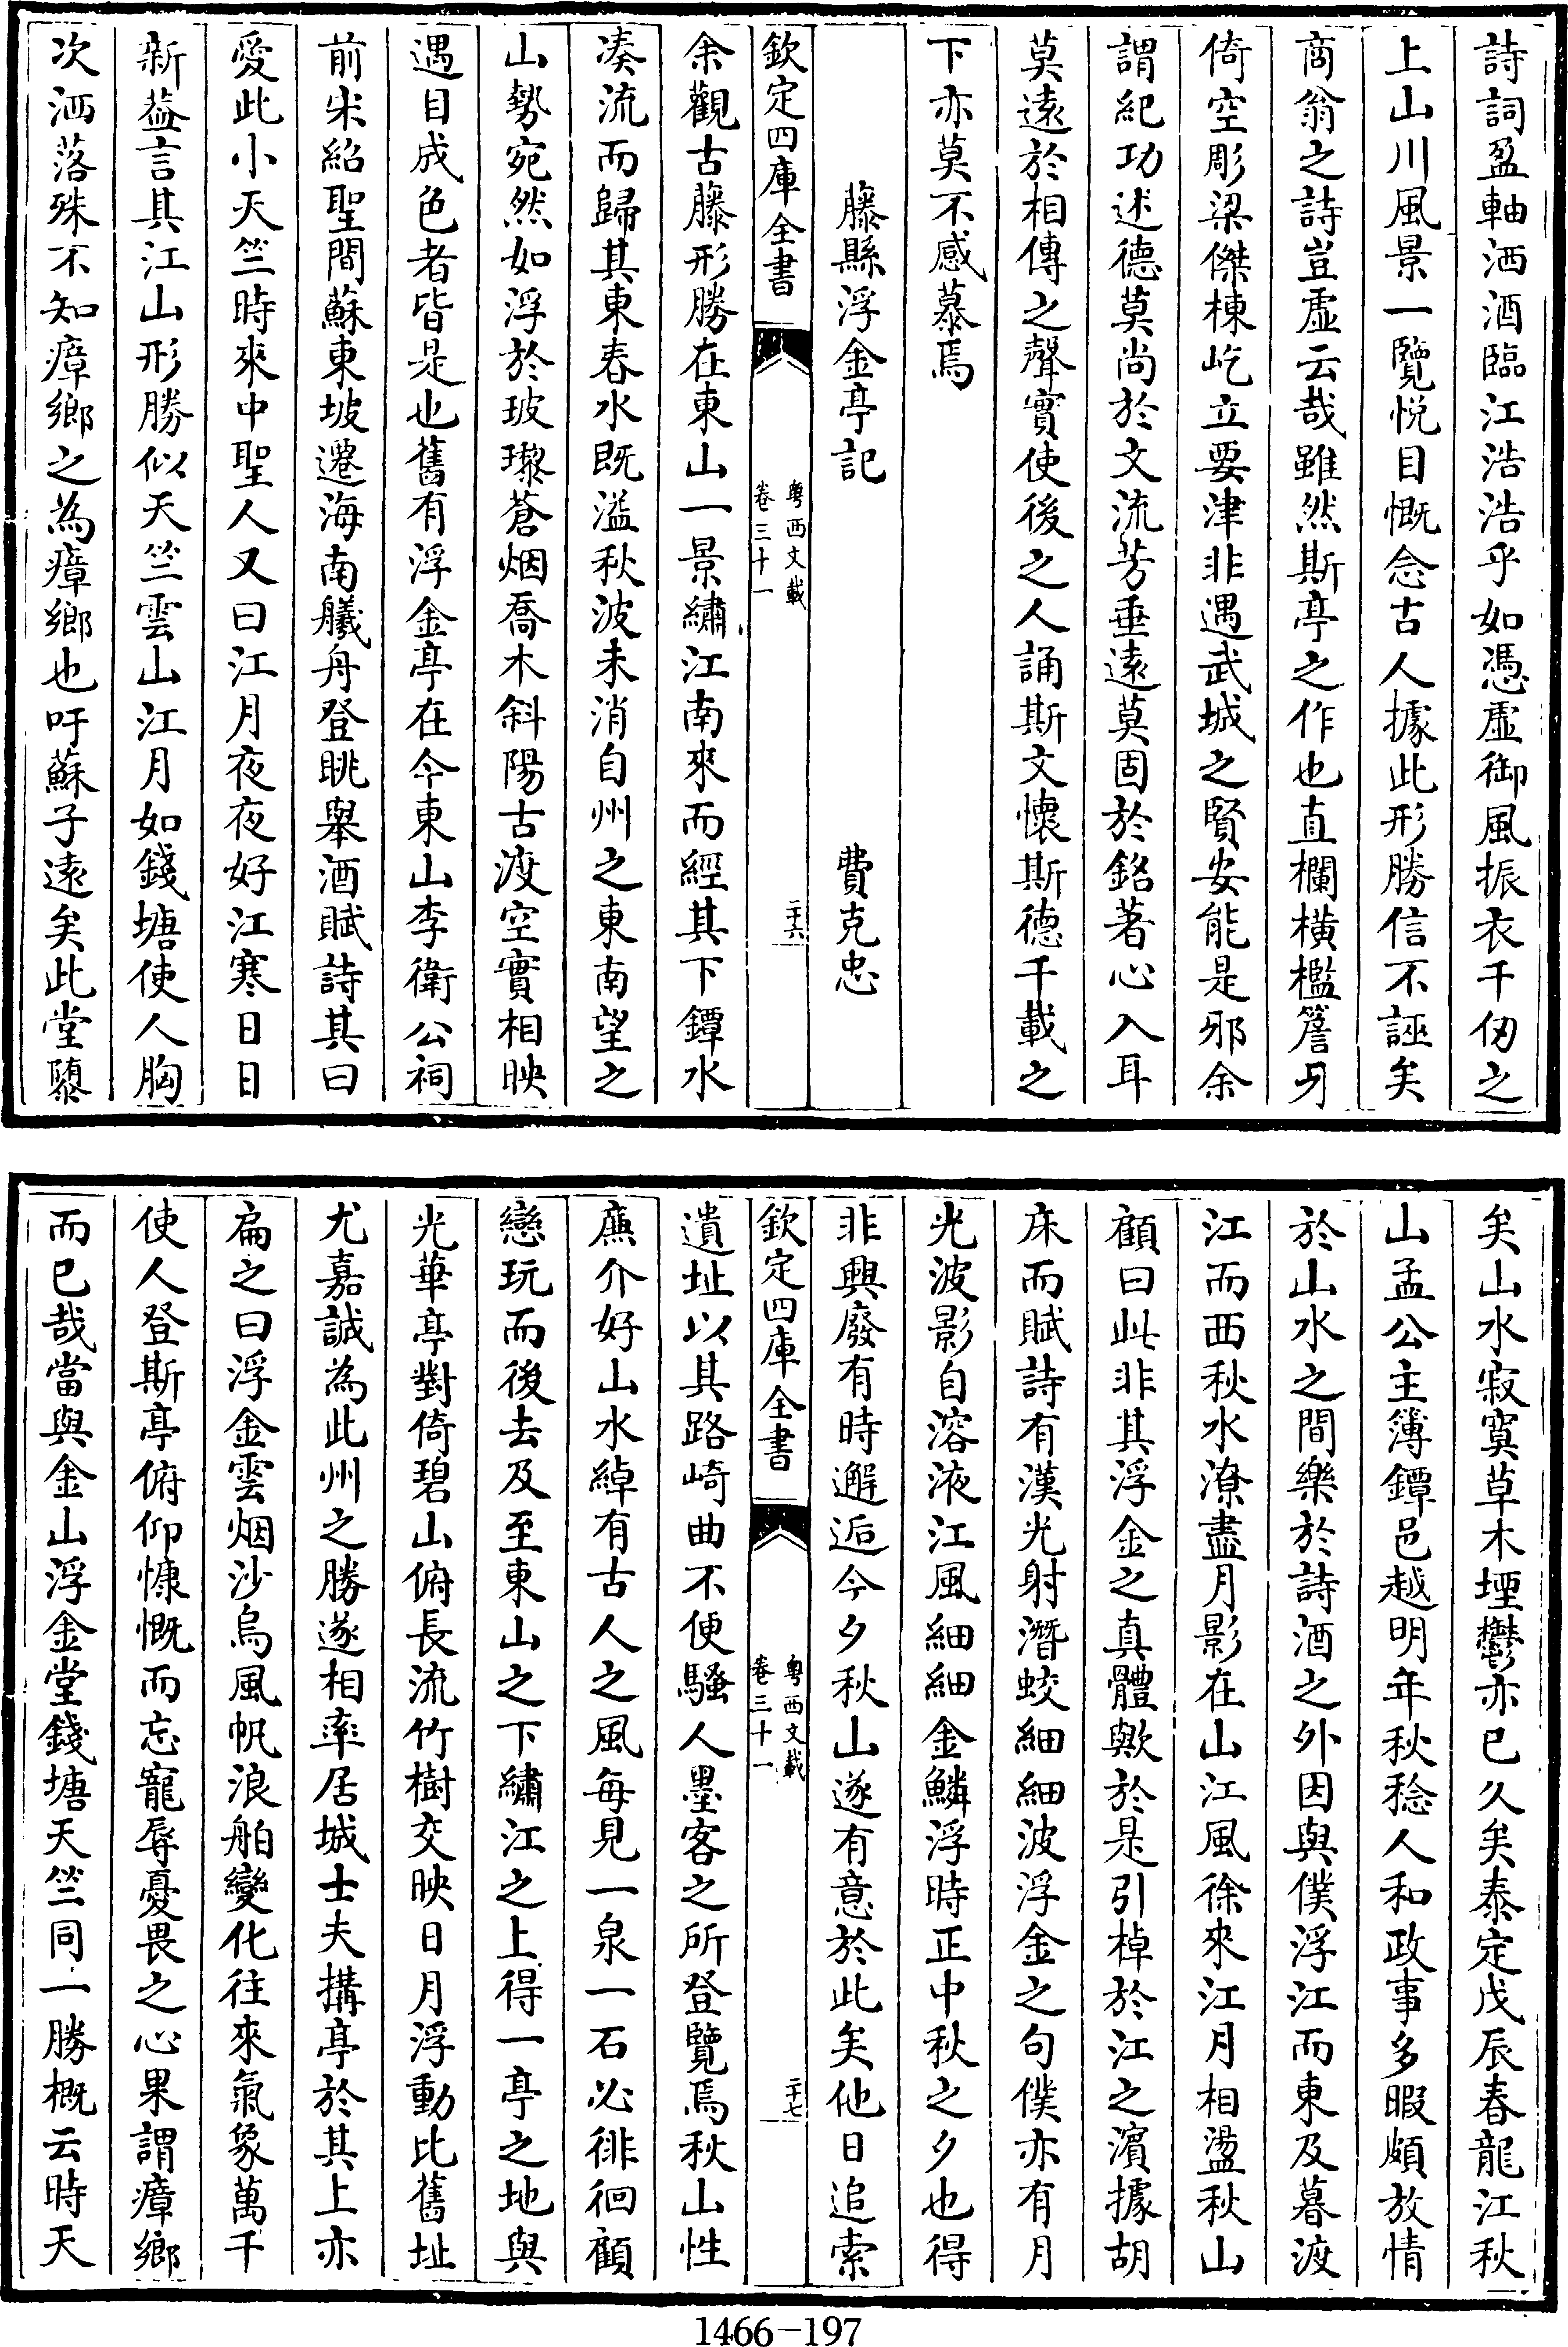 詩詞盈軸洒酒臨江浩浩乎如憑虛御風振衣千仞之
上山川風景一覽悅目慨念古人據此形勝信不誣矣
商翁之詩豈虛云哉雖然斯亭之作也直欄橫檻簷牙
倚空彫梁傑棟屹立要津非遇武城之賢安能是邪余
謂紀功述德莫尚於文流芳垂遠莫固於銘著心入耳
莫遠於相傳之聲實使後之人誦斯文懷斯德千載之
下亦莫不感慕焉
藤縣浮金亭記 費克忠
欽定四庫全書 粵西文載 卷三十一 二十六
余觀古藤形勝在東山一景繡江南來而經其下鐔水
湊流而歸其東春水既溢秋波未消自州之東南望之
山勢宛然如浮於玻瓈蒼烟喬木斜陽古渡空實相映
遇目成色者皆是也舊有浮金亭在今東山李衛公祠
前宋紹聖間蘇東坡遷海南艤舟登眺舉酒賦詩其曰
愛此小天竺時來中聖人又曰江月夜夜好江寒日日
新葢言其江山形勝似天竺雲山江月如錢塘使人胸
次洒落殊不知瘴鄉之為瘴鄉也吁蘇子遠矣此堂隳
矣山水寂寞草木堙鬱亦已久矣泰定戊辰春龍江秋
山孟公主簿鐔邑越明年秋稔人和政事多暇頗放情
於山水之間樂於詩酒之外因與僕浮江而東及暮渡
江而西秋水潦盡月影在山江風徐來江月相盪秋山
顧曰此非其浮金之真體歟於是引棹於江之濱據胡
床而賦詩有漢光射潛蛟細細波浮金之句僕亦有月
光波影自溶液江風細細金鱗浮時正中秋之夕也得
非興廢有時邂逅今夕秋山遂有意於此矣他日追索
欽定四庫全書 粵西文載 卷三十一 二十七
遺址以其路崎曲不便騷人墨客之所登覽焉秋山性
廉介好山水綽有古人之風每見一泉一石必徘徊顧
戀玩而後去及至東山之下繡江之上得一亭之地與
光華亭對倚碧山俯長流竹樹交映日月浮動比舊址
尤嘉誠為此州之勝遂相率居城士夫搆亭於其上亦
扁之曰浮金雲烟沙烏風帆浪舶變化往來氣象萬千
使人登斯亭俯仰慷慨而忘寵辱憂畏之心果謂瘴鄉
而已哉當與金山浮金堂錢塘天竺同一勝概云時天
1466-197